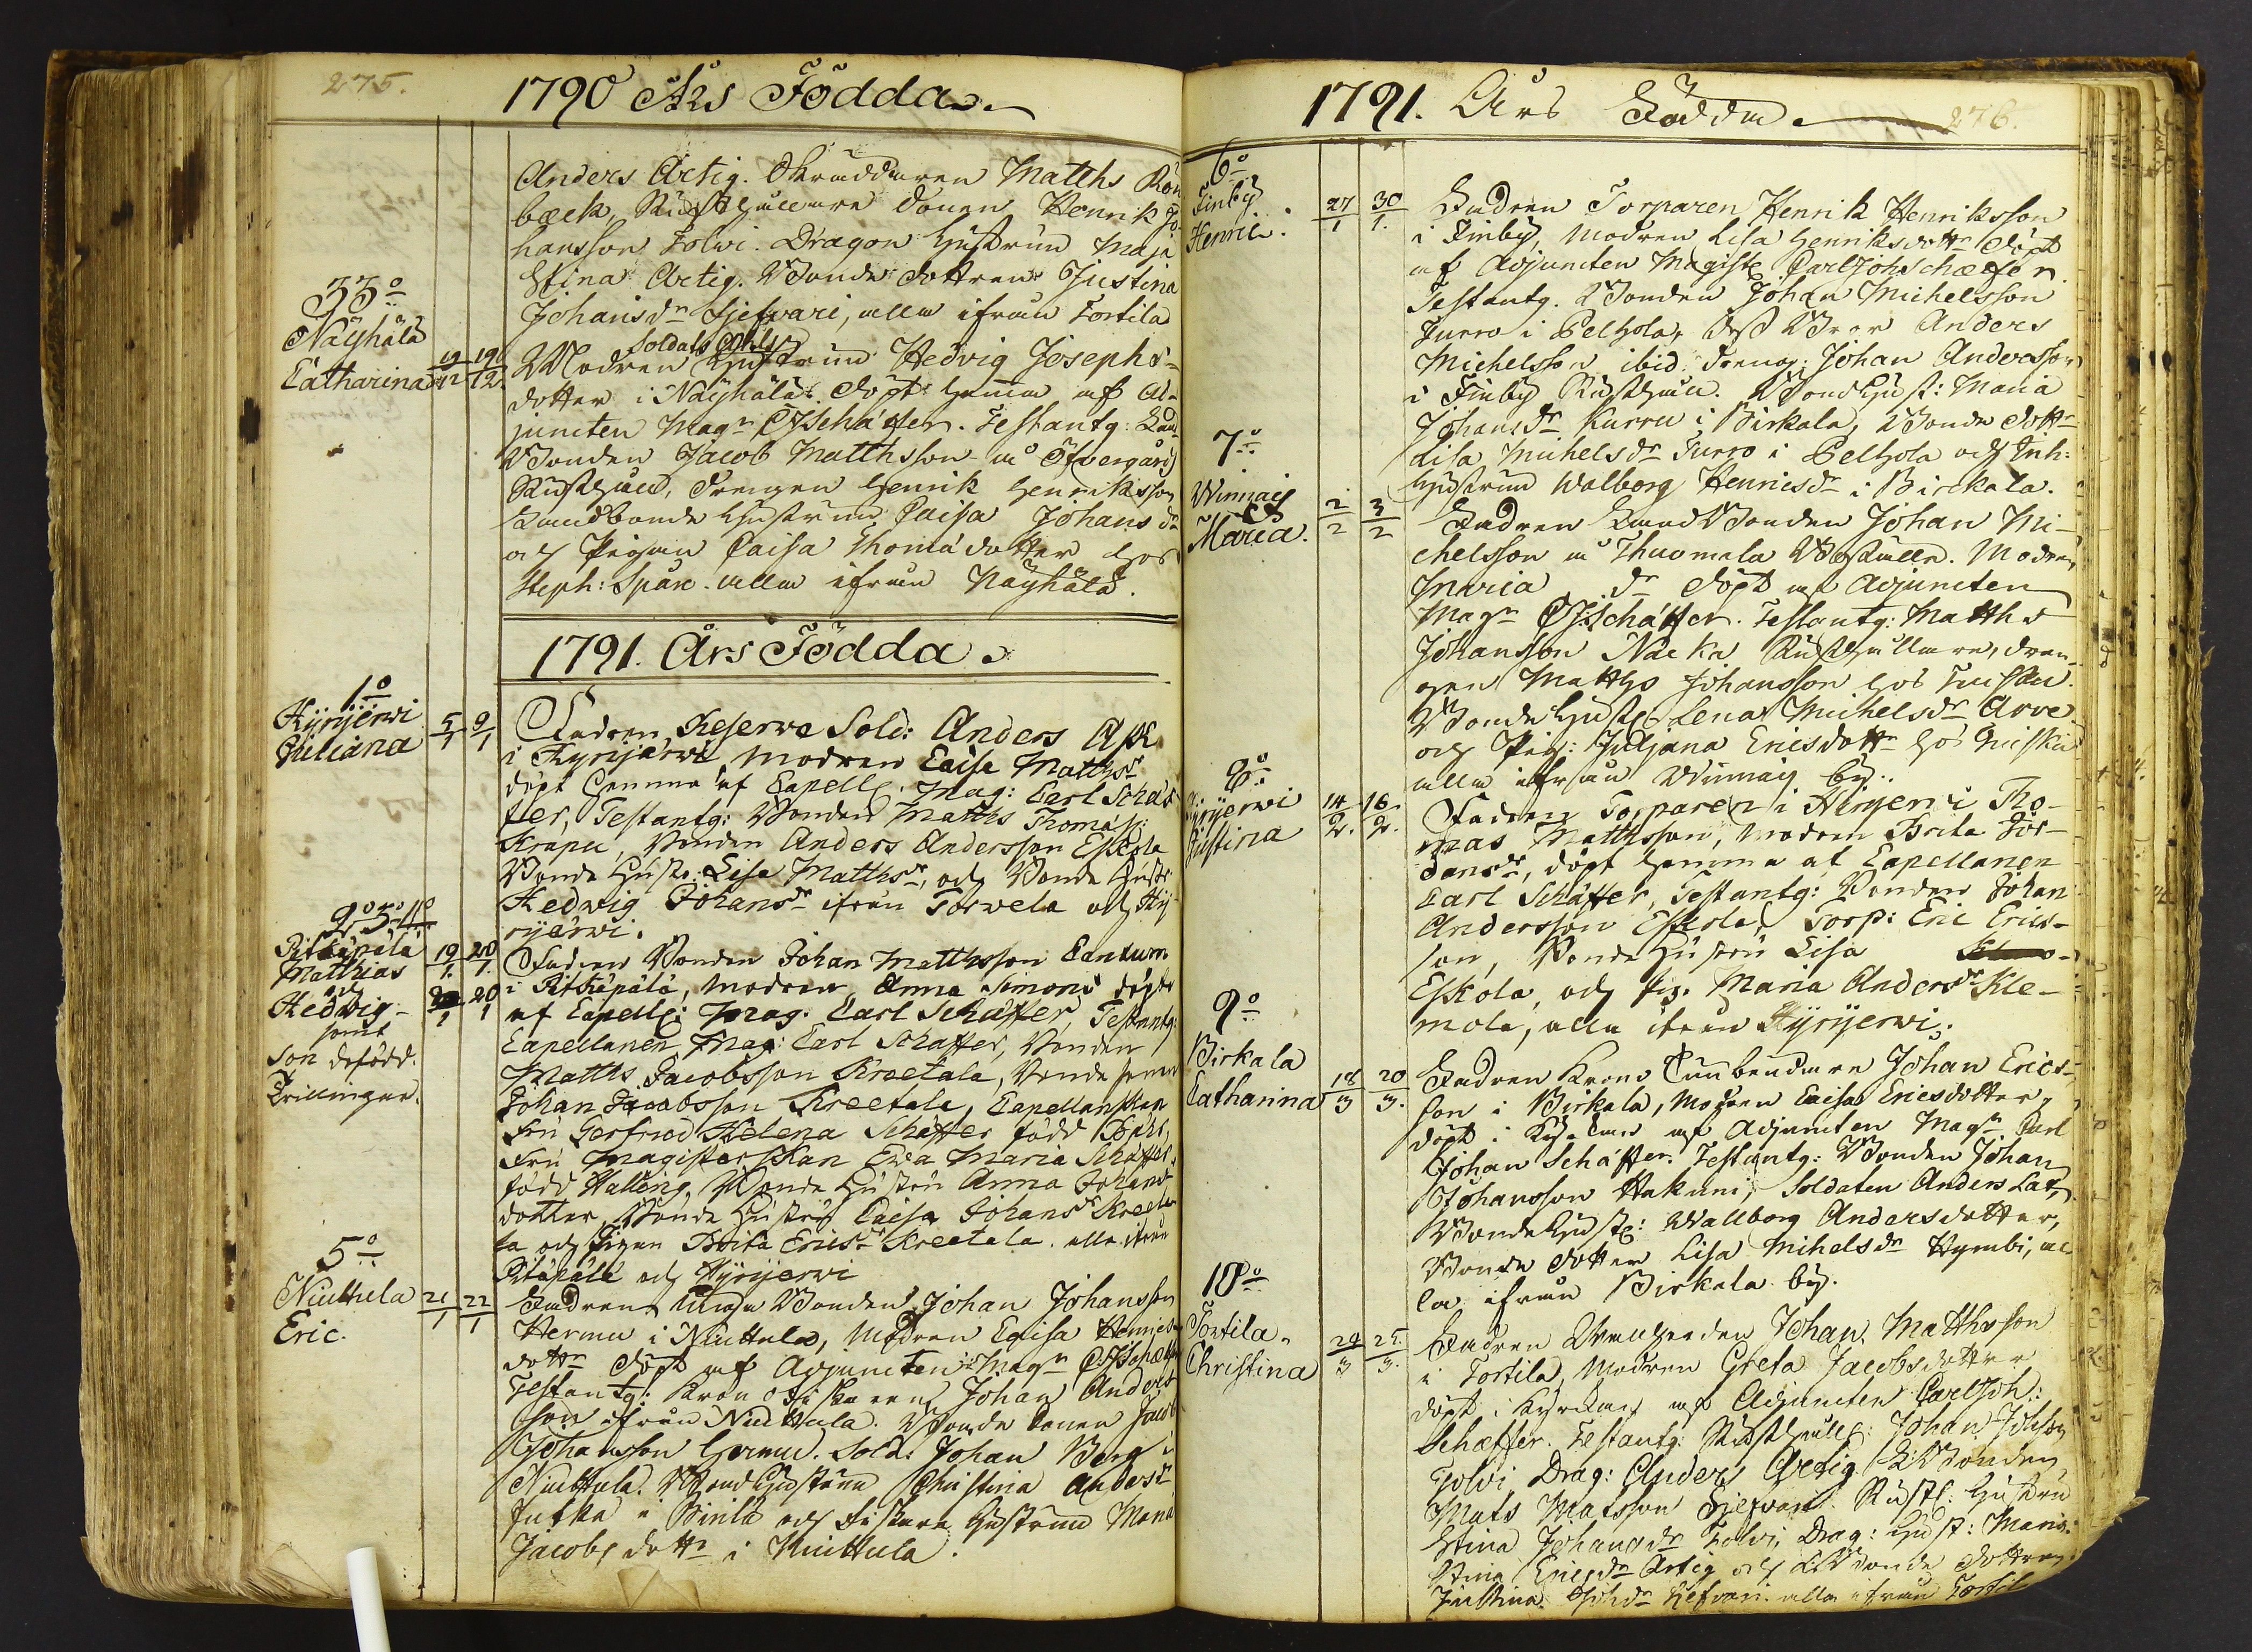 275.
1790 Års Födda.
Anders Artig. Skräddaren Matths Rön
bæck, Rusthållare Sonen Henrik Jo-
hansson Tolvi. Dragon Hustrun Maja
Stina Artig. Bonde dottren Justina
Johansdr Sjefvari, alla ifrån Tortila
33o
Näyhälä
Catharina
19/12 19/12
Soldats
Modren Hustrun Hedvig Josephs-
dotter i Näyhälä. döpt hemma af Ad-
juncten Magr CJSchäffer. Testantg: Land
Bonden Jacob Matthsson å Öfvergårds
Rusthåll, Drengen Henrik Henriksson
Landbonde Hustrun Caisa Johansdr
och Pigan Caisa Thomædotter hos
Steph: Spåre. alla ifrån Näyhälä.
1791. Års Födda.
1o
Hyrijerwi
Juliana
5/1 9/1
Fadren Reserve Sold: Anders Ask
i Kyrijärwi, modren Caisa Matthsdr
döpt hemma af Capell. Mag: Carl Schäf-
fer, Testantg: Bonden Matths Thomas:
Krapu, Bonden Anders Andersson Eskola
Bonde Hustr: Lisa Matthsdr, och Bonde Hustr
Hedwig Johansdr ifrån Torwela och Hy-
ryjerwi.
2o 3o 4o
Pitkäpälä
Matthias
och
Hedwig
samt
Son dödfödd.
Trillingar.
19/1 20/1
20/1 20/1
Fadren Bonden Johan Matthsson Canturi
i Pitkäpälä, modren Anna Simons döpte
af Capell: Mag. Carl Schäffer, Testantg:
Capellanen Mag: Carl Schäffer, Bonden
Matths Jacobsson Kreetala, Bonde sonen
Johan Jacobsson Kreetala, Capellanskan
Fru Gertrud Helena Schäffer född
Fru Magisterskan Ewa Maria Schäffer,
född Walleng, Bonde Hustru Anna Johans
dotter, Bonde Hustru Caisa Johansdr Kreeta-
la och Pigan Brita Ericsdr Kreetala. alla ifrån
Pitkäpälä och Hyryjerwi
5o
Niuttula
Eric.
21/1 22/1
Fadren Unga Bonden Johan Johansson
Hermu i Niuttula, Modren Caisa Henrics
dottr Döpt af Adjuncten Magr CJSchæffer
Testantg: Krono Fiskaren Johan Anders
son ifrån Niuttula. Bonde Sonen Jacob
Johansson Hermu. Sold: Johan Berg i
Niuttula. Bond Hustrun Christina Andersdr
Jutka i Pinilä och Fiskare Hustrun Maria
Jacobsdottr i Niuttula.
1791. Års Födda.
276.
6o
Finby
Henric.
27/1 30/1.
Fadren Torparen Henrik Henriksson
i Finby, Modren Lisa Henriksdottr Döpt
af Adjuncten Magist: CarlJohSchæffer
Testantg. Bonden Johan Michelsson
Jurro i Pelhola, dess Bror Anders
Michelsson ibid. Dreng: Johan Andersson
i Finby Rusthåll. Bond Hust: Maria
Johansdr Kurru i Birkala, Bonde dottr
Lisa Michelsdr Jurro i Pelhola och Inh:
Hustrun Walborg Henricsdr i Birkala.
7o
Winnais
Maria.
2/2 3/2
Fadren Land Bonden Johan Mi-
chelsson å Thuomala Modren
Maria dr Döpt af Adjuncten
Magr CJSchäffer. Testantg: Matths
Johansson Näcka Rusthållare, Dren-
gen Matths Johansson hos
Bonde Hust: Lena Michelsdr Arve
och Pig: Juljana Ericsdottr hos
alla ifrån Winnais by.
8o
Hyryerwi
Justina
14/2. 16/2.
Fadren Torparen i Hyryerwi Tho-
mas Matthsson, modren Brita Jör-
dansdr, döpt hemma af Capellanen
Carl Schäffer, Testantg: Bonden Johan
Andersson Eskola, Torp: Eric Erics-
son, Bonde Hustru Lisa
Eskola, och Pig. Maria Andersdr Kle-
mola, alla ifrån Hyryjerwi.
9o
Birkala
Catharina
18/3 20/3.
Fadren Krono Johan Erics-
son i Birkala, Modren Caisa Ericsdotter,
döpt i Kyrckan af Adjuncten Magr Carl
Johan Schäffer. Testantg: Bonden Johan
Johansson Hakuni, Soldaten Anders Lat,
Bonde Hust: Wallborg Andersdotter,
Bonde dotter Lisa Mihelsdr Hyrnbi, al
la ifrån Birkala by.
10o
Tortila.
Christina
24/3 25/3.
Fadren Johan Matthsson
i Tortila, Modren Greta Jacobsdotter
döpt i Kyrckan af Adjuncten CarlJoh:
Schæffer. Testantg: Rusthåll: Johan Johsson
Tolvi, Drag: Anders Artig. LBonden
Mats Matsson Sjefvari. Rusth: Hustru
Stina Johansdr Tolvi, Drag: Hust: Maria
Stina Ericsdr Artig och LBonde dottren
Justina Johdr Sjefvari. alla ifrån Tortil